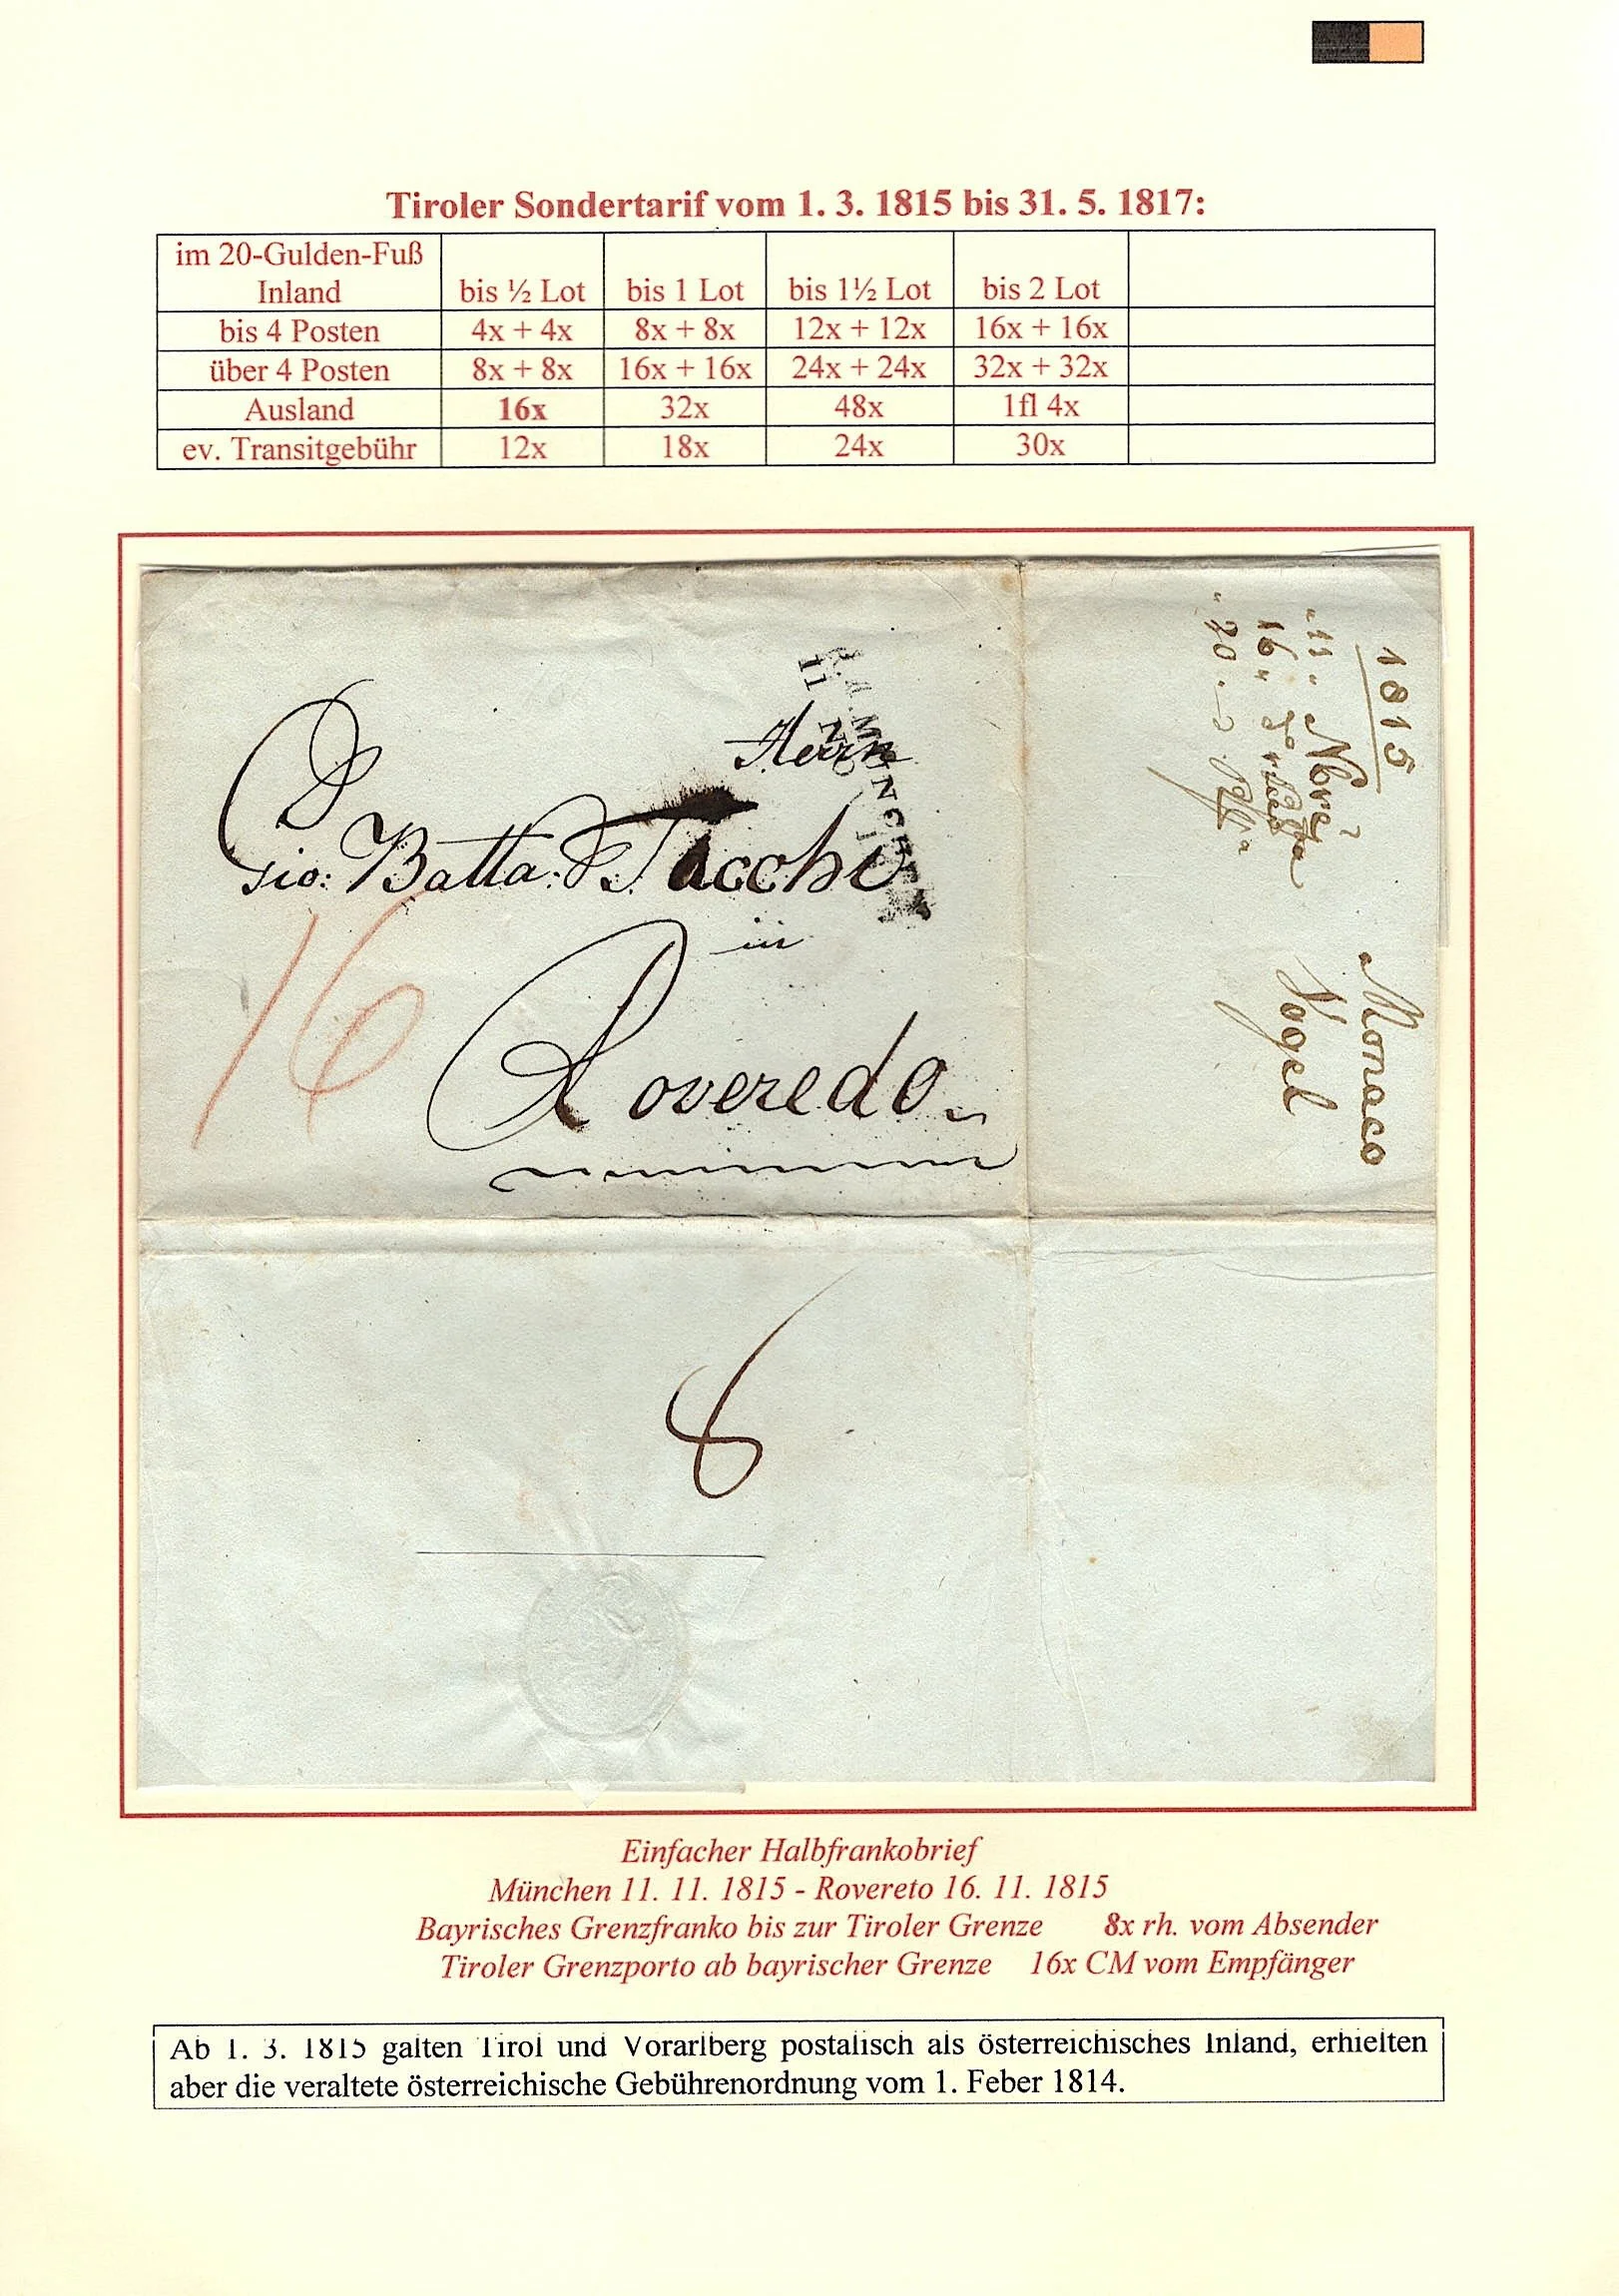 Tiroler Sondertarif vom 1. 3. 1815 bis 31. 5. 1817:
im 20-Gulden-Fuß
Inland bis ½ Lot bis 1 Lot bis 1½ Lot bis 2 Lot
bis 4 Posten 4x + 4x 8x + 8x 12x + 12x 16x + 16x
über 4 Posten 8x + 8x 16x + 16x 24x + 24x 32x + 32x
Ausland 16x 32x 48x 1fl 4x
ev. Transitgebühr 12x 18x 24x 30x
R.4.MÜNCHEN
11 NOV
Herrn
Gio: Batta: Tacchi
in
Roveredo
16
1815
"11" Nbre
16"
"20"
Monaco
Vogel
8
Einfacher Halbfrankobrief
München 11. 11. 1815 - Rovereto 16. 11. 1815
Bayrisches Grenzfranko bis zur Tiroler Grenze 8x rh. vom Absender
Tiroler Grenzporto ab bayrischer Grenze 16x CM vom Empfänger
Ab 1. 3. 1815 galten Tirol und Vorarlberg postalisch als österreichisches Inland, erhielten
aber die veraltete österreichische Gebührenordnung vom 1. Feber 1814.